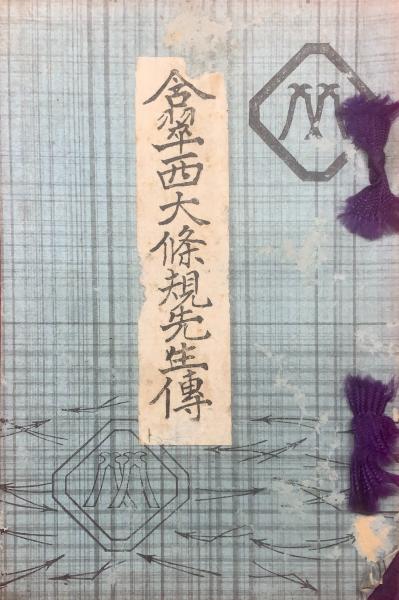 含翠西大條規先生傳